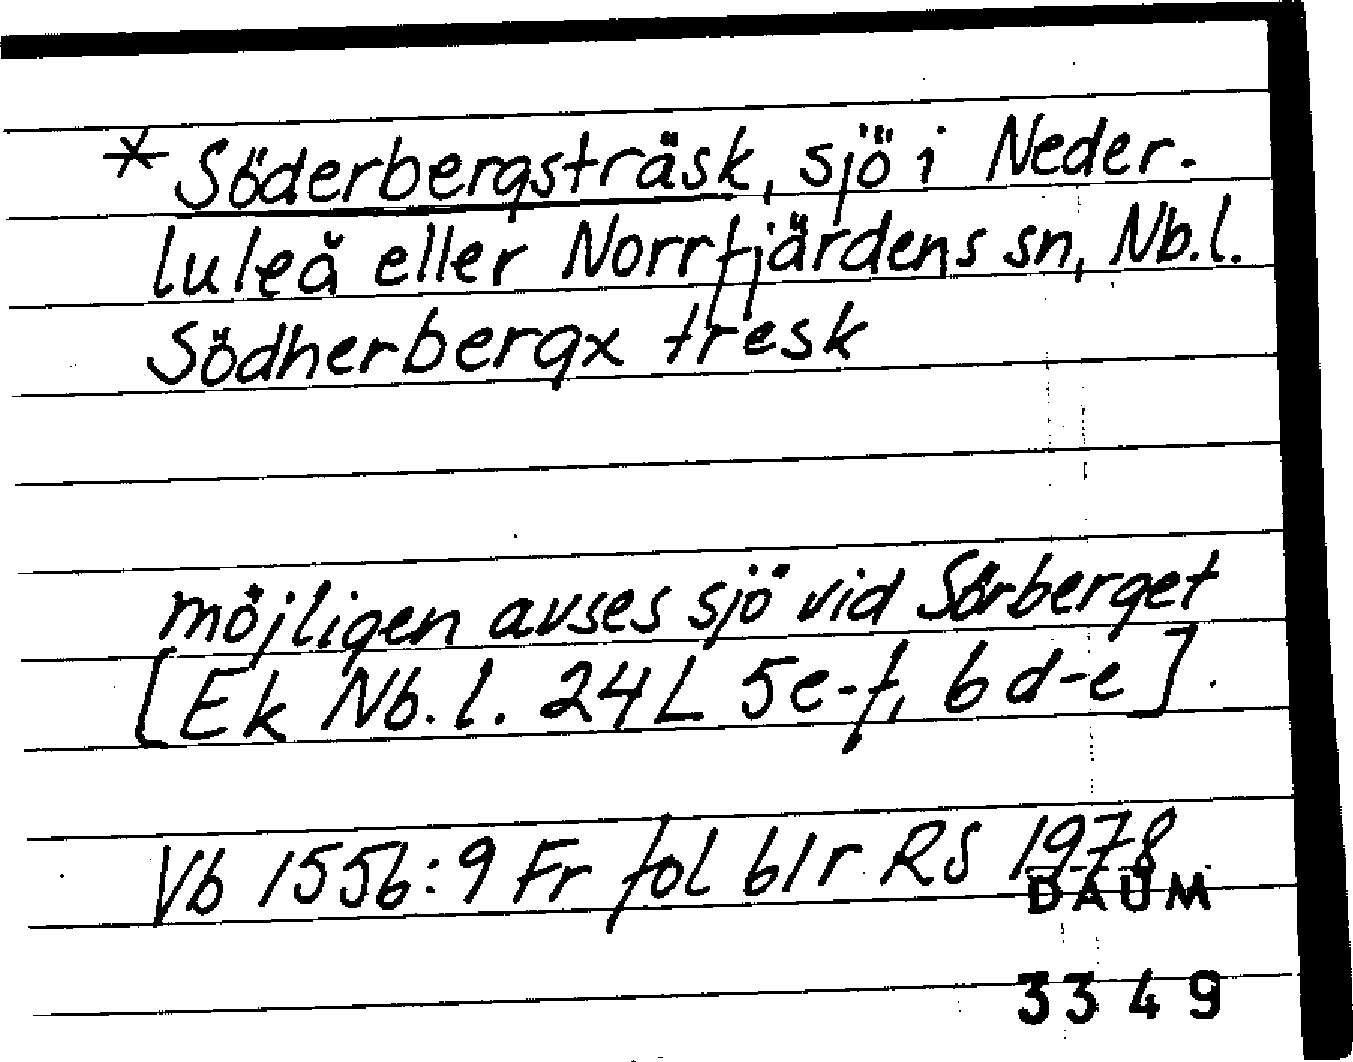 * Söderbergsträsk, sjö i Neder-
luleå eller Norrfjärdens sn, Nb.l.
Södherbergx tresk
möjligen avses sjö vid Sörberget
[Ek Nb.l. 24L 5e-f, 6d-e].
Vb 1556:9 Fr fol 61r RS 1978
DAUM
3349